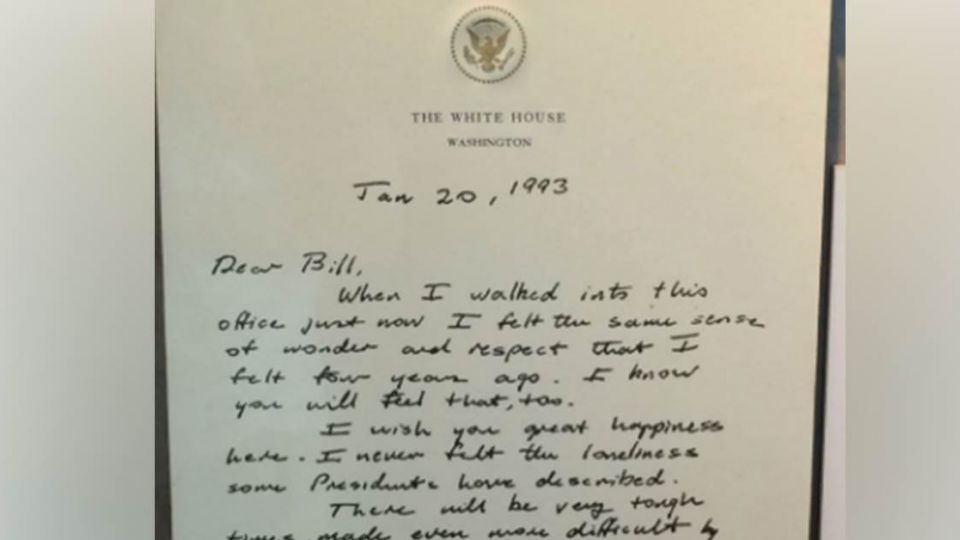 THE WHITE HOUSE
WASHINGTON
Jan 20, 1993
Dear Bill,
When I walked into this
office just now I felt the same sense
of wonder and respect that I
felt four years ago. I know
you will feel that, too.
I wish you great happiness
here. I never felt the loneliness
some Presidents have described.
There will be very tough
times, made even more difficult by